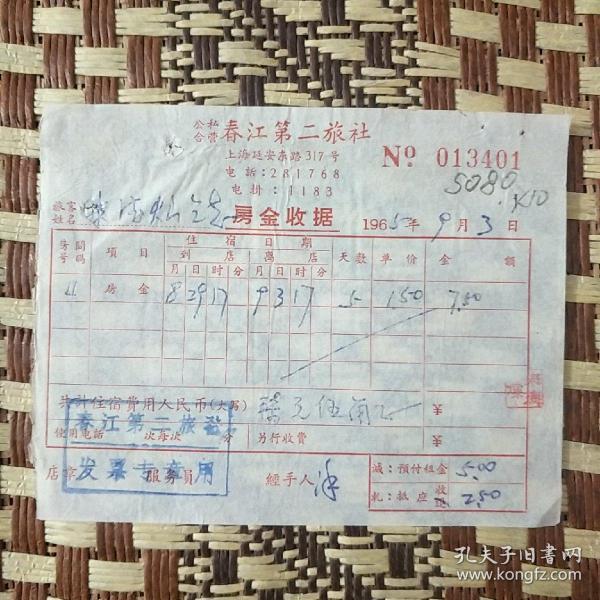 公私合营 春江第二旅社
上海延安东路317号
No 013401
电話：281768
5080
电掛：1183
旅客姓名
房金收据 1965年9月3日
房間号碼 項目 住宿日期 到店 离店 天数 单价 金額
月 日 时 分 月 日 时 分
4 房金 8 29 17 9 3 17 5 1.50 7.50
共計住宿費用人民币(大写) 柒元伍角 ¥
春江第二旅社
使用电話 次每次 分 另行收費 ¥
店章 服务員 經手人
发票专用
減：預付租金 5.00
札：抵应收 2.50
孔夫子旧書网
www.kongfz.com